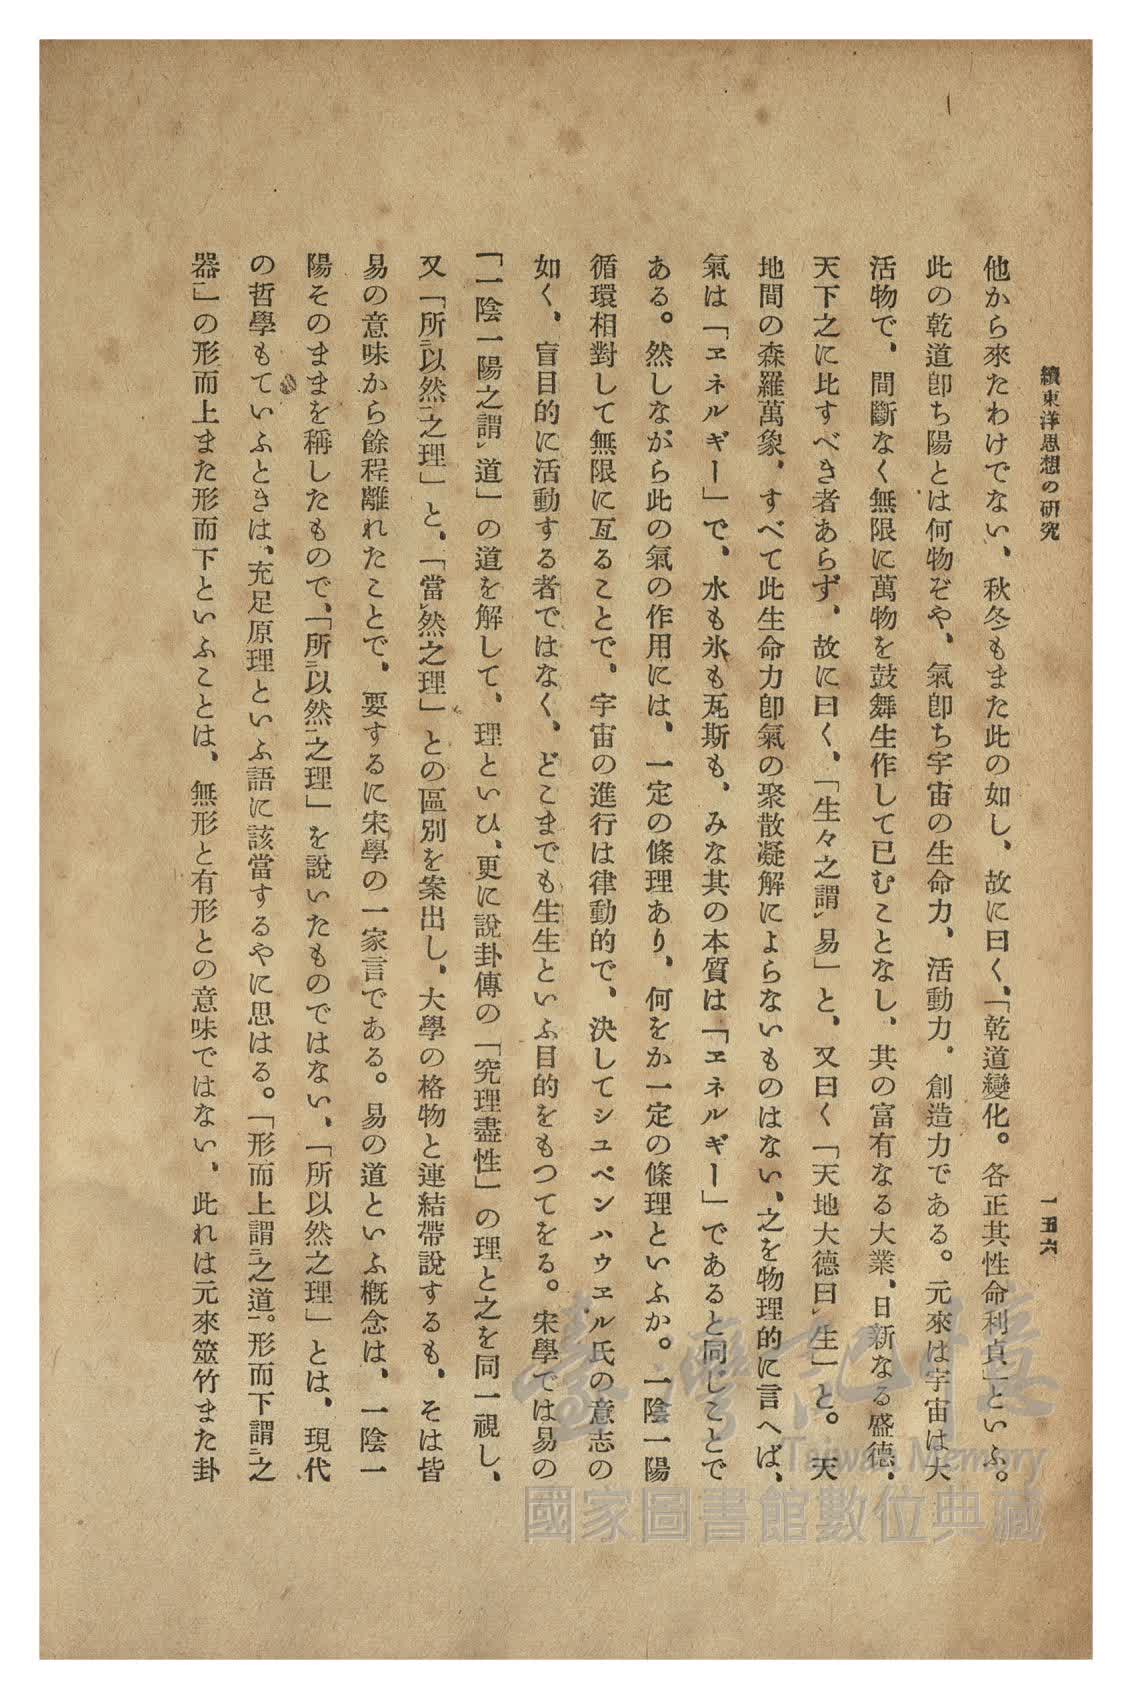 續東洋思想の研究
一五六
他から來たわけでない、秋冬もまた此の如し、故に曰く、「乾道變化。各正其性命利貞」といふ。
此の乾道卽ち陽とは何物ぞや、氣卽ち宇宙の生命力、活動力、創造力である。元來は宇宙は大
活物で、間斷なく無限に萬物を鼓舞生作して已むことなし、其の富有なる大業、日新なる盛德、
天下之に比すべき者あらず、故に曰く、「生々之謂㆑易」と、又曰く「天地大德曰㆑生」と。天
地間の森羅萬象、すべて此生命力卽氣の聚散凝解によらないものはない、之を物理的に言へば、
氣は「エネルギー」で、水も氷も瓦斯も、みな其の本質は「エネルギー」であると同じことで
ある。然しながら此の氣の作用には、一定の條理あり、何をか一定の條理といふか。一陰一陽
循環相對して無限に亙ることで、宇宙の進行は律動的で、決してシユペンハウエル氏の意志の
如く、盲目的に活動する者ではなく、どこまでも生生といふ目的をもつてをる。宋學では易の
「一陰一陽之謂㆑道」の道を解して、理といひ、更に說卦傳の「究理盡性」の理と之を同一視し、
又「所㆓以然㆒之理」と、「當㆑然之理」との區別を案出し、大學の格物と連結帶說するも、そは皆
易の意味から餘程離れたことで、要するに宋學の一家言である。易の道といふ概念は、一陰一
陽そのままを稱したもので、「所㆓以然㆒之理」を說いたものではない、「所以然之理」とは、現代
の哲學もていふときは、充足原理といふ語に該當するやに思はる。「形而上謂㆓之道㆒。形而下謂㆓之
器㆒」の形而上また形而下といふことは、無形と有形との意味ではない、此れは元來筮竹また卦
臺灣記憶
Taiwan Memory
國家圖書館數位典藏